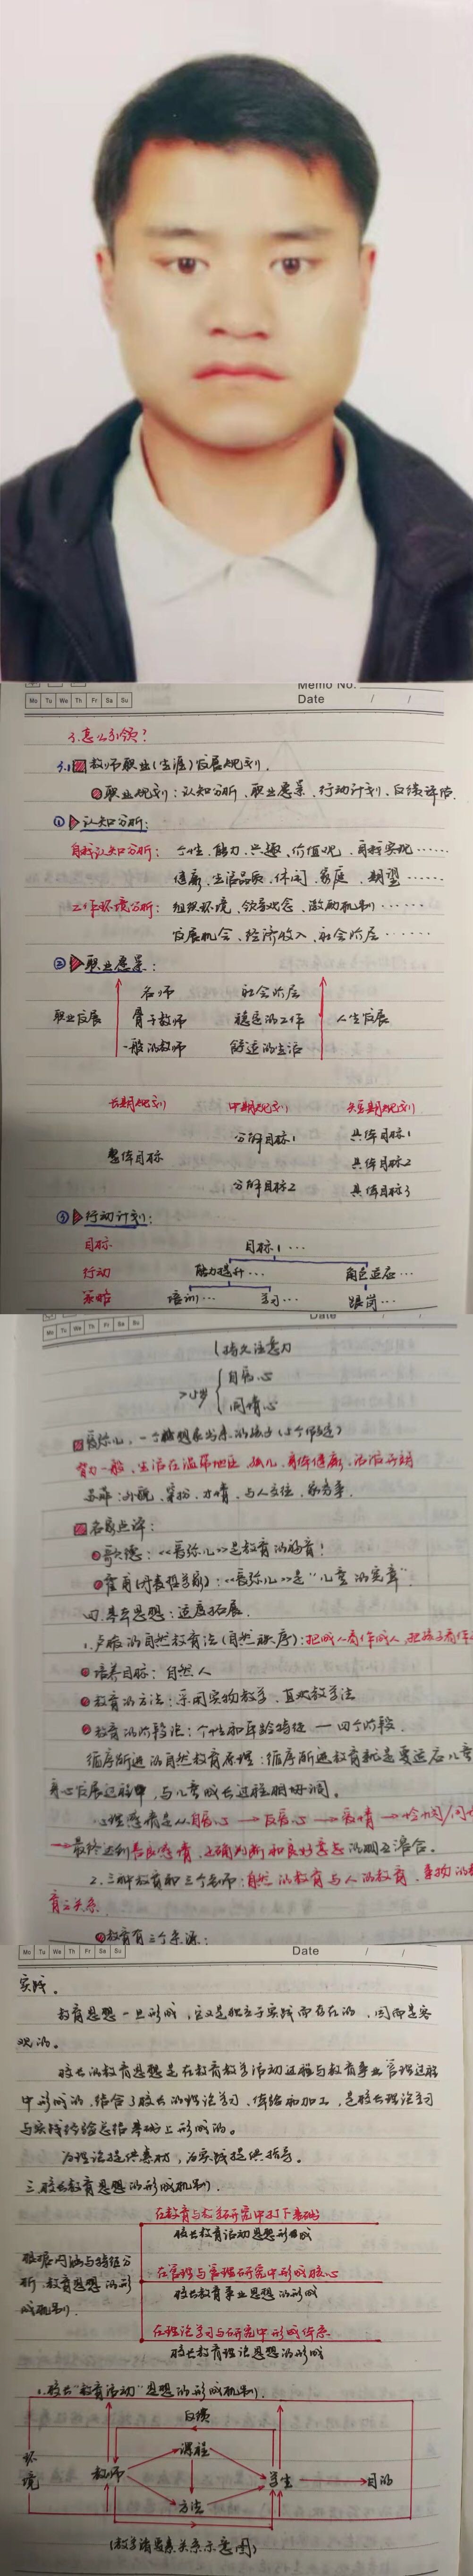 Memo No.
Mo Tu We Th Fr Sa Su
Date / /
3.怎么引领?
3.1 教师职业(生涯)发展规划.
职业规划:认知分析、职业愿景、行动计划、反馈评估.
① 认知分析:
自我认知分析: 个性、能力、兴趣、价值观、自我实现……
健康、生活品质、休闲、家庭、期望……
工作环境分析: 组织环境、领导观念、激励机制……
发展机会、经济收入、社会阶层……
② 职业愿景:
名师 社会阶层
职业发展 骨干教师 稳定的工作 人生发展
一般的教师 舒适的生活
长期规划 中期规划 短期规划
分解目标1 具体目标1
整体目标 具体目标2
分解目标2 具体目标3
③ 行动计划:
目标 目标1…
行动 能力提升… 角色适应…
策略 培训… 学习… 跟岗…
Mo Tu We Th Fr Sa Su
Date
持久注意力
自爱心
>15岁
同情心
爱弥儿,一个被想象出来的孩子(5个阶段)
智力一般、生活在温带地区、孤儿、身体健康、活泼开朗
苏菲:外貌、穿扮、才情、与人交往、家务事.
名家点评:
歌德:《爱弥儿》是教育的福音!
霍甫(丹麦哲学家):《爱弥儿》是"儿童的宪章"
四.基本思想:适度拓展.
1.卢梭的自然教育法(自然秩序):把成人看作成人,把孩子看作
培养目标:自然人
教育的方法:采用实物教学、直观教学法
教育的阶段论:个性和年龄特征 — 四个阶段.
循序渐进的自然教育原理:循序渐进教育就是要适应儿童
身心发展过程中,与儿童成长过程相协调.
心理感情是从自爱心→友爱心→爱情→怜悯/同情
→最终达到善良感情、正确判断和良好意志的相互混合.
2.三种教育和三个老师:自然的教育与人的教育、事物的教
育之关系.
教育有三个来源:
Mo Tu We Th Fr Sa Su
Date / /
实践.
教育思想一旦形成,它又是独立于实践而存在的,因而是客
观的.
校长的教育思想是在教育教学活动过程与教育事业管理过程
中形成的,结合了校长的理论学习、体验和加工,是校长理论学习
与实践经验总结基础上形成的.
为理论提供素材,为实践提供指导.
三.校长教育思想的形成机制.
在教育与教学研究中打下基础
校长教育活动思想形成
根据内涵与特征分
在管理与管理研究中形成核心
析,教育思想的形
校长教育事业思想的形成
成机制.
在理论学习与研究中形成体系
校长教育理论思想的形成
1.校长"教育活动"思想的形成机制.
反馈
课程
环境 教师 学生 目的
方法
(教学诸要素关系示意图)